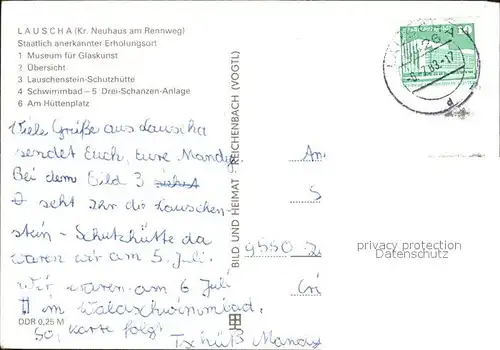 LAUSCHA (Kr. Neuhaus am Rennweg)
Staatlich anerkannter Erholungsort
1 Museum für Glaskunst
2 Übersicht
3 Lauschenstein-Schutzhütte
4 Schwimmbad – 5 Drei-Schanzen-Anlage
6 Am Hüttenplatz
Viele Grüße aus Lauscha
sendet Euch, Eure Mandy.
Bei dem Bild 3
seht Ihr die Lauschen-
stein - Schutzhütte da
waren wir am 5. Juli.
Wir waren am 6 Juli
im Waldschwimmbad.
Karte folgt
Tschüß
DDR 0,25 M
BILD UND HEIMAT REICHENBACH (VOGTL)
An
S
9550
Cri
10
privacy protection
Datenschutz